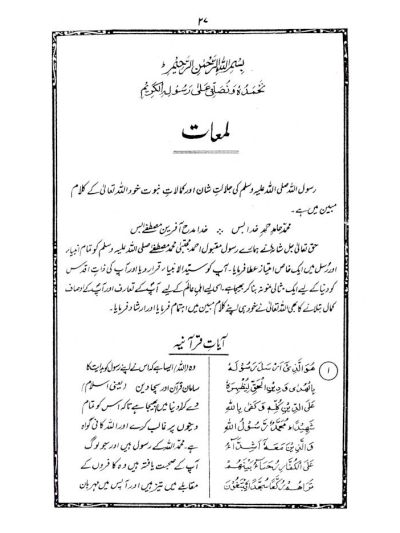 ۲۷
بسم اللہ الرحمٰن الرحیم
نحمدہ ونصلی علیٰ رسولہ الکریم
لمعات
رسول اللہ صلی اللہ علیہ وسلم کی جلالتِ شان اور کمالاتِ نبوت خود اللہ تعالیٰ کے کلام
مبین میں ہے۔
محمد حامدِ حمدِ خدا بس ؞ خدا مدح آفرینِ مصطفےٰ بس
حق تعالیٰ جل شانہٗ نے ہمارے رسول مقبول احمد مجتبیٰ محمد مصطفےٰ صلی اللہ علیہ وسلم کو تمام انبیاء
اور رسل میں ایک خاص امتیاز عطا فرمایا۔ آپ کو سید الانبیاء قرار دیا اور آپ کی ذاتِ اقدس
کو دنیا کے لیے ایک مثالی نمونہ بنا کر بھیجا ہے، اسی لیے اہلِ عالم کے لیے آپ کے تعارف اور آپ کے اوصافِ
کمال بتلانے کا بھی اللہ تعالیٰ نے خود ہی اپنے کلام مبین میں اہتمام فرمایا اور ارشاد فرمایا۔
آیاتِ قرآنیہ
۱
هُوَ الَّذِيْ اَرْسَلَ رَسُوْلَهٗ
بِالْهُدٰى وَدِيْنِ الْحَقِّ لِيُظْهِرَهٗ
عَلَى الدِّيْنِ كُلِّهٖ وَكَفٰى بِاللّٰهِ
شَهِيْدًا ۝ مُحَمَّدٌ رَّسُوْلُ اللّٰهِ
وَالَّذِيْنَ مَعَهٗ اَشِدَّآءُ
عَلَى الْكُفَّارِ رُحَمَآءُ بَيْنَهُمْ
تَرٰىهُمْ رُكَّعًا سُجَّدًا يَّبْتَغُوْنَ
وہ (اللہ) ایسا ہے کہ اس نے اپنے رسول کو ہدایت کا
سامان قرآن اور سچا دین (یعنی اسلام)
دے کر دنیا میں بھیجا ہے تاکہ اس کو تمام
دینوں پر غالب کرے اور اللہ کافی گواہ
ہے۔ محمد اللہ کے رسول ہیں اور جو لوگ
آپ کے صحبت یافتہ ہیں وہ کافروں کے
مقابلے میں تیز ہیں اور آپس میں مہربان